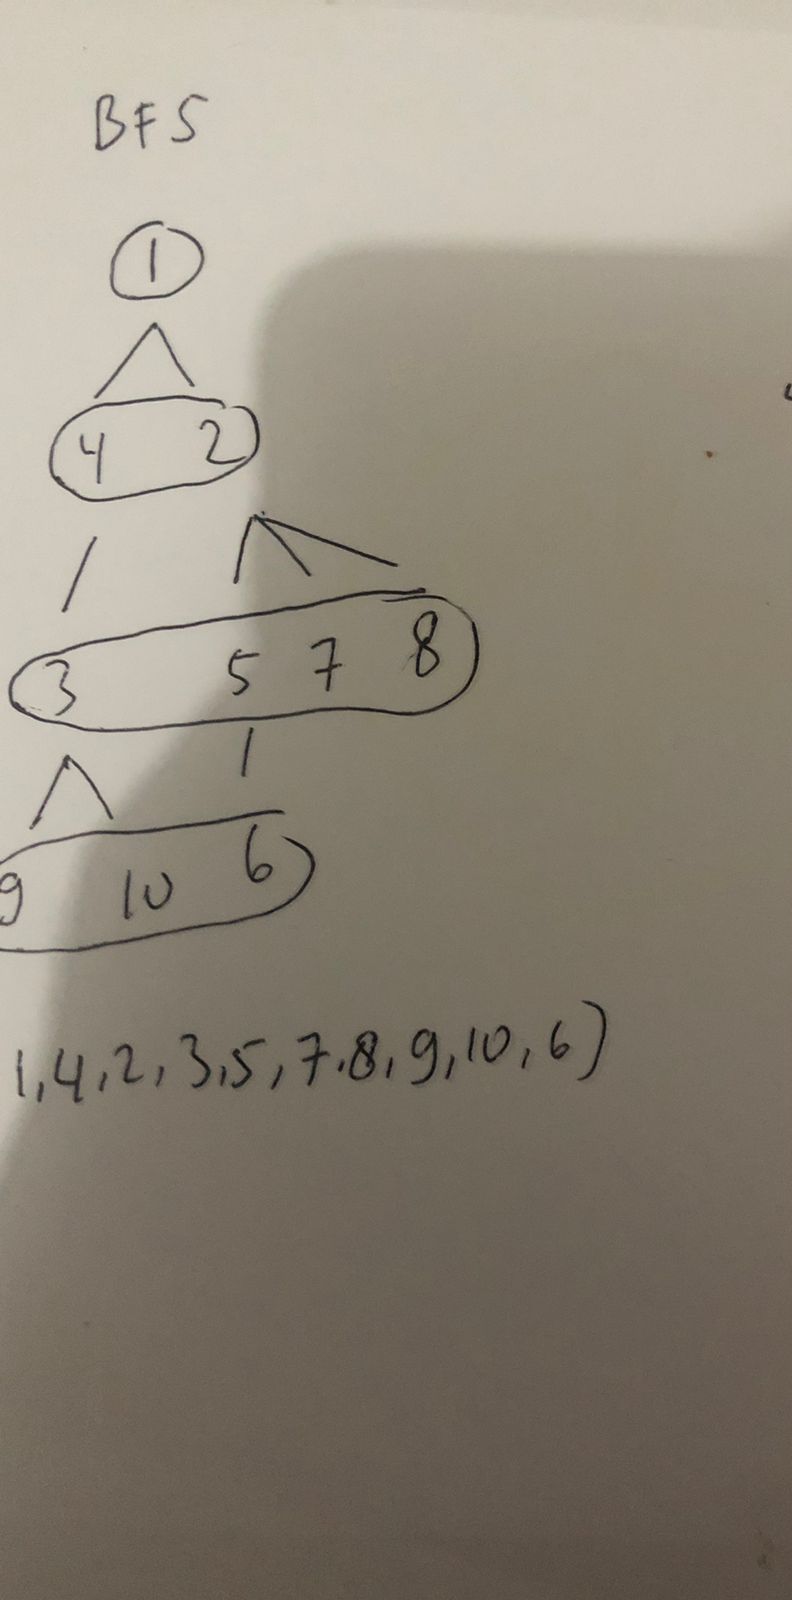 BFS
1
4 2
3 5 7 8
9 10 6
1,4,2,3,5,7.8,9,10,6)